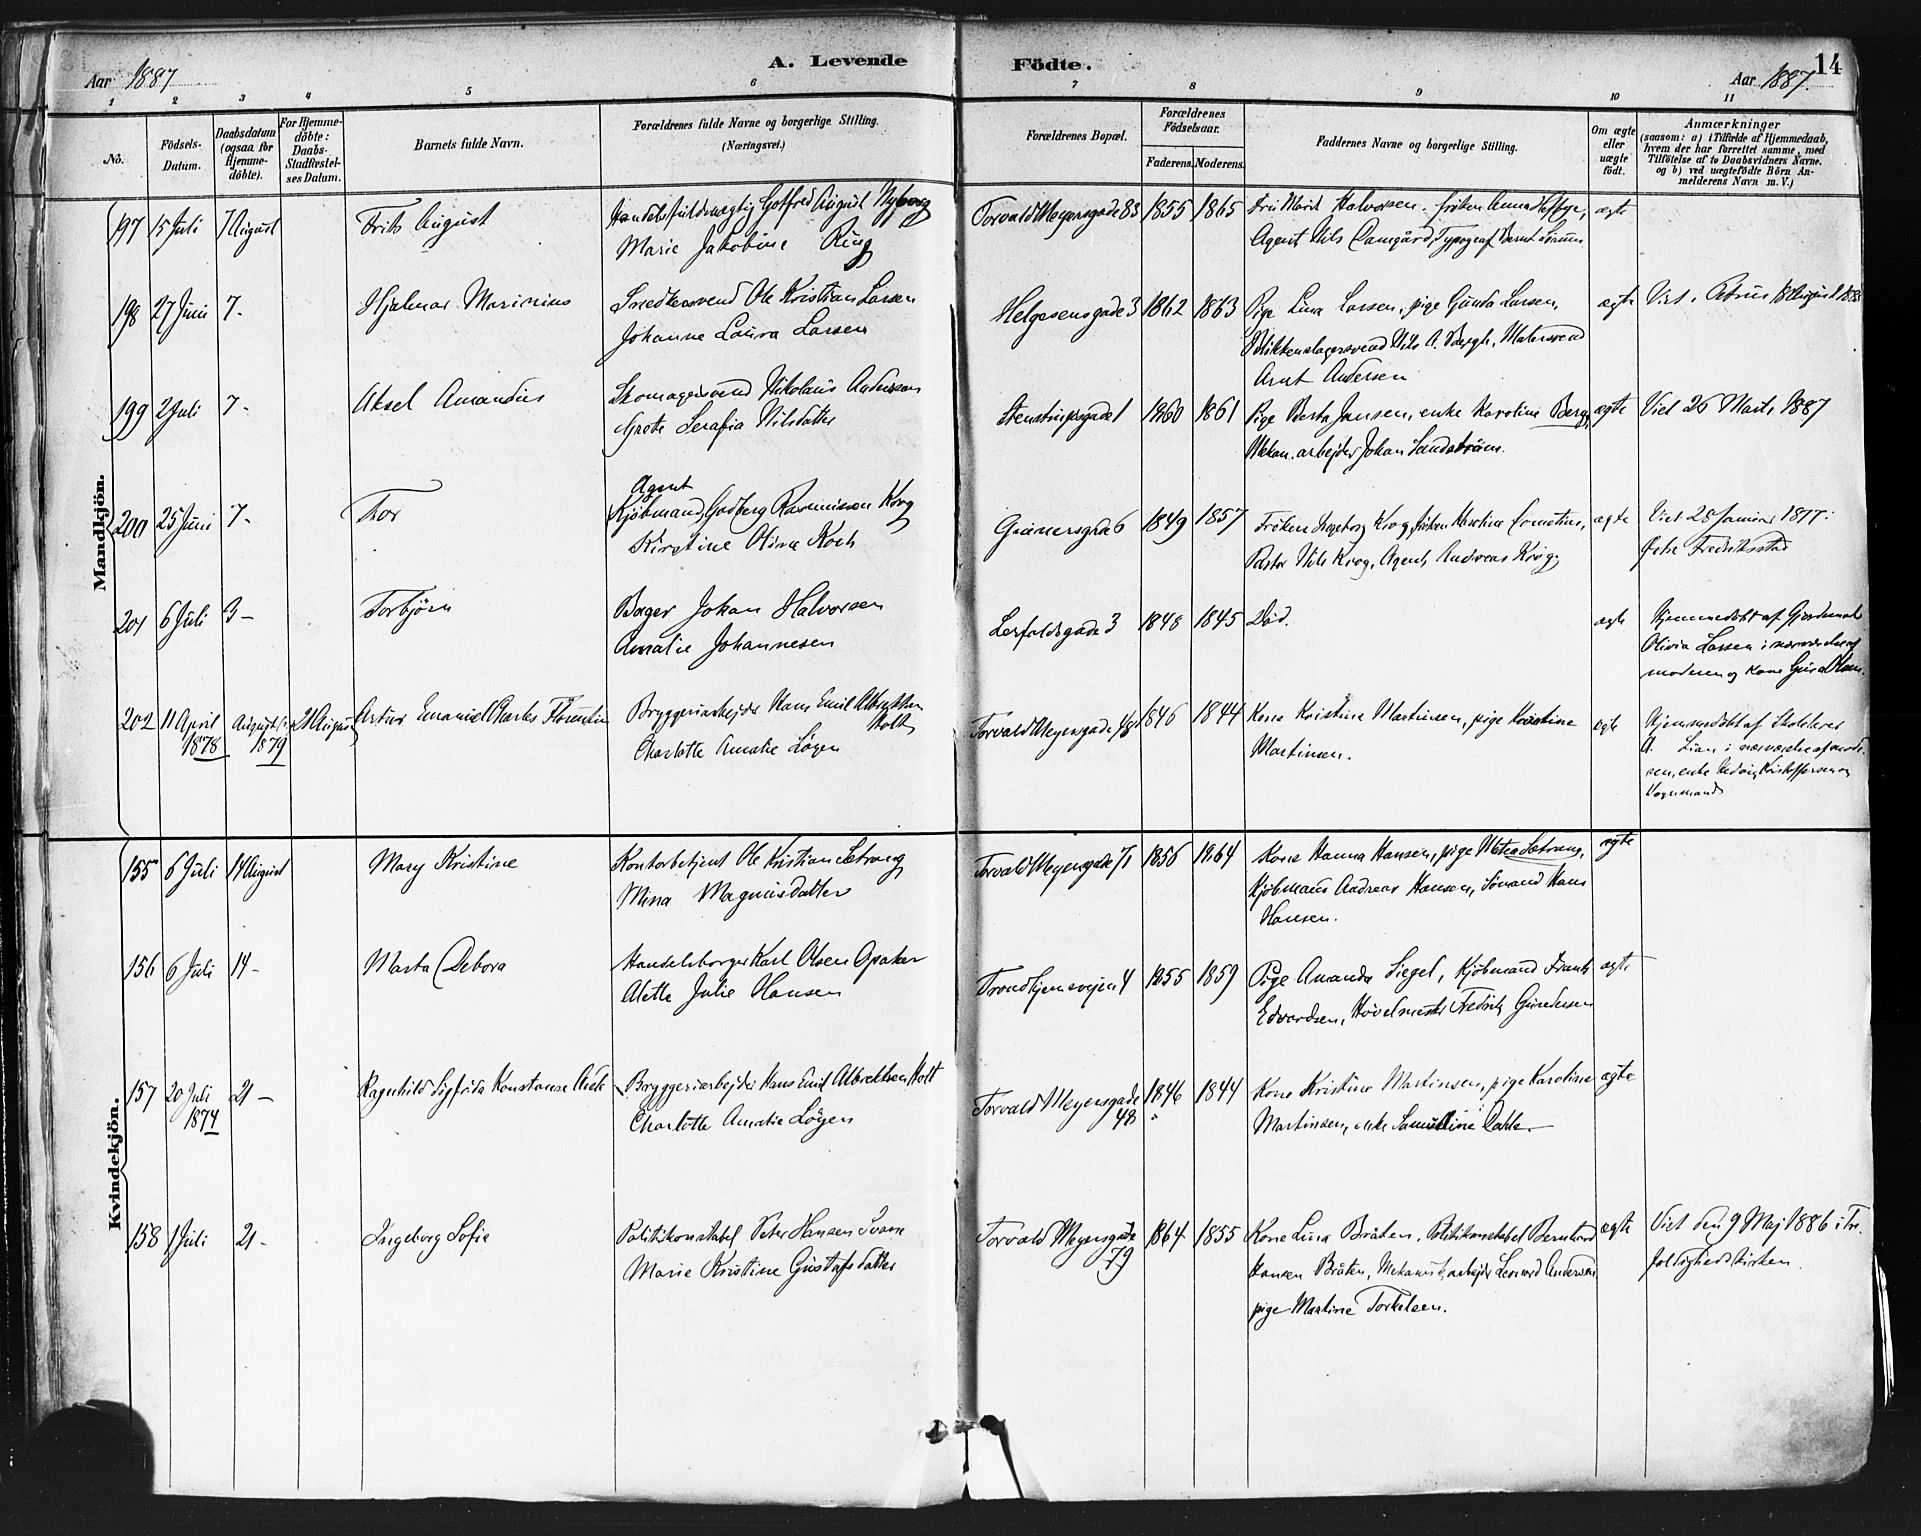 A. Levende Födte.
14
Aar 1887
Aar 1887.
1 2 3 4 5 6 7 8 9 10 11
No.
Födsels-Datum.
Daabsdatum (ogsaa for Hjemme-döbte).
For Hjemme-döbte: Daabs-Stadfestel-ses Datum.
Barnets fulde Navn.
Forældrenes fulde Navne og borgerlige Stilling.
(Næringsvei.)
Forældrenes Bopæl.
Forældrenes Födselsaar.
Faderens. Moderens.
Faddernes Navne og borgerlige Stilling.
Om ægte eller uægte födt.
Anmærkninger
(saasom: a) i Tilfælde af Hjemmedaab,
hvem der har forrettet samme, med
Tilföielse af to Daabsvidners Navne.
og b) ved uægtefödte Börn An-
melderens Navn m. V.)
Mandkjön.
197 15 Juli 7 August Frits August Handelsfuldmægtig Gotfred August Nyborg Torvald Meyersgade 83 1855 1865 Fru Marie Halvorsen, fröken Anna Heftye, ægte
Marie Jakobine Ring Agent Nils Damgård, Typograf Bernt
198 27 Juni 7 - Hjalmar Marinius Snedkersvend Ole Kristian Larsen Helgesensgade 3 1862 1863 Pige Lina Larsen, pige Gunda Larsen, ægte Viet i Petrus 18 August
Johanne Laura Larsen Blikkenslagersvend Nils A. Bergh, Malersvend
Arnt Andersen
199 2 Juli 7 - Aksel Amandus Skomagersvend Nikolaus Andersen Stenstrupsgade 1 1860 1861 Pige Berta Jansen, enke Karoline Berg, ægte Viet 26 Marts 1887
Grete Serafia Nilsdatter Mekan. arbejder Johan Sandström.
200 25 Juni 7 - Thor Agent
Kjöbmand, Godberg Rasmussen Krog Grünersgade 6 1849 1857 Fröken Ingeborg Krog, fröken Karoline ægte Viet 25 Januar 1877 i
Kirstine Olive Koch Pastor Nils Krog, Agent, Andreas Krog. Östre Fredriksstad
201 6 Juli 3 - Torbjörn Bager Johan Halvorsen Lerfaldsgade 3 1848 1845 Död. ægte Hjemmedöbt af Gjordemoder
Amalie Johannesen Olivia Larsen i nærværelse af
moderen og kone Olsen.
202 11 April 1878 August 1879 21 August Artur Emanuel Charles Florentin Bryggeriarbejder Hans Emil Albrektsen Holt Torvald Meyersgade 48 1846 1844 Kone Kristine Martinsen, pige Karoline ægte Hjemmedöbt af Skolelærer
Charlotte Amalie Lögen Martinsen. A. Lian i nærværelse af mode-
ren, enke Hedvig Kristoffersen og
Vognmand
Kvindekjön.
155 6 Juli 14 August Mary Kristine Kontorbetjent Ole Kristian Torvald Meyersgade 71 1856 1864 Kone Hanna Hansen, pige ægte
Mina Magnusdatter Kjöbmand Andreas Hansen, Sömand Hans
Hansen.
156 6 Juli 14 - Marta Debora Handelsborger Karl Olsen Opaker Trondhjemsvejen 4 1855 1859 Pige Amanda Siegel, Kjöbmand Frants ægte
Alette Julie Hansen Edvardsen, Hövelmester Fredrik Gundersen
157 20 Juli 1874 21 - Ragnhild Sigfrida Konstanse Bryggeriarbejder Hans Emil Albrektsen Holt Torvald Meyersgade 48 1846 1844 Kone Kristine Martinsen, pige Karoline ægte
Charlotte Amalie Lögen Martinsen, enke Samueline Dahl.
158 1 Juli 21 - Ingeborg Sofie Politikonstabel Peter Hansen Svane Torvald Meyersgade 79 1864 1855 Kone Lina Bråten, Politikonstabel Bernhard ægte Viet den 9 Maj 1886 i Tre-
Marie Kristine Gustafsdatter Hansen Bråten, Mekanisk arbejder Leonard Andersen foldighedskirken.
pige Martine Torkelsen.